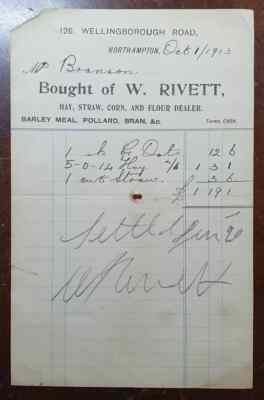 126, WELLINGBOROUGH ROAD,
NORTHAMPTON, Oct 1/1913
Mr Branson
Bought of W. RIVETT,
HAY, STRAW, CORN, AND FLOUR DEALER.
BARLEY MEAL, POLLARD, BRAN, &c. Terms, CASH.
1 Oats 12 6
5-0-14 Hay 4/6 1 3 1
1 cwt Straw 3 6
£ 1 19 1
Settled
W Rivett